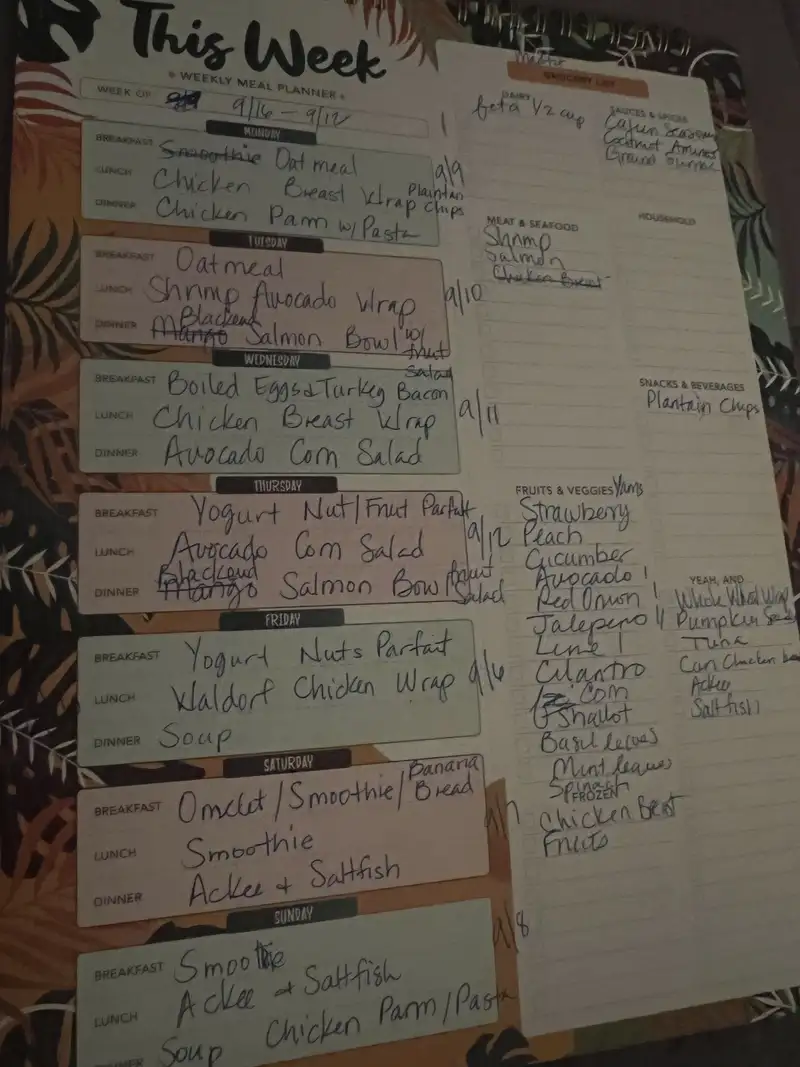 This Week
WEEKLY MEAL PLANNER
WEEK OF 9/16 - 9/12
MONDAY
BREAKFAST Smoothie Oatmeal 9/9
LUNCH Chicken Breast Wrap Plaintan Chips
DINNER Chicken Parm w/ Pasta
TUESDAY
BREAKFAST Oatmeal
LUNCH Shrimp Avocado Wrap 9/10
Blackend
DINNER Mango Salmon Bowl w/ fruit Salad
WEDNESDAY
BREAKFAST Boiled Eggs & Turkey Bacon
LUNCH Chicken Breast Wrap 9/11
DINNER Avocado Corn Salad
THURSDAY
BREAKFAST Yogurt Nut/Fruit Parfait
LUNCH Avocado Corn Salad 9/12
Blackend
DINNER Mango Salmon Bowl fruit Salad
FRIDAY
BREAKFAST Yogurt Nuts Parfait
LUNCH Waldorf Chicken Wrap 9/6
DINNER Soup
SATURDAY
BREAKFAST Omelet/Smoothie/Banana Bread
LUNCH Smoothie 9/7
DINNER Ackee + Saltfish
SUNDAY
BREAKFAST Smoothie
LUNCH Ackee + Saltfish 9/8
DINNER Soup Chicken Parm/Pasta
GROCERY LIST
DAIRY
feta 1/2 cup
SAUCES & SPICES
Cajun
Coconut Aminos
Ground
MEAT & SEAFOOD
Shrimp
Salmon
Chicken Breast
HOUSEHOLD
SNACKS & BEVERAGES
Plantain Chips
FRUITS & VEGGIES Yams
Strawberry
Peach
Cucumber
Avocado 1
Red Onion 1
Jalepeno 11
Lime 1
Cilantro
Corn
Shallot
Basil leaves
Mint leaves
Spinach
FROZEN
Chicken Best
Fruits
YEAH, AND
Whole Wheat Wrap
Pumpkin Seeds
Tuna
Can Chicken
Ackee
Saltfish